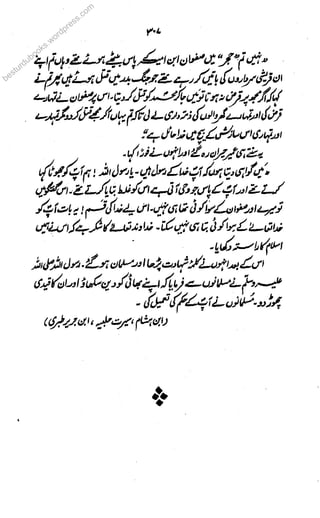 besturdubooks.wordpress.com
۳۰۷
"نہیں تم "حجر" میں صفوان ابن امیہ کے پاس بیٹھے ہوئے تھے وہاں تم اپنے
ان قریشی سرداروں کی باتیں کر رہے تھے جو جنگ بدر میں قتل ہوئے ہیں پھر تم نے
کہا کہ اگر مجھ پر قرض نہ ہوتا تو میں جا کر محمد کو قتل کر دیتا۔ اس پر صفوان نے تمہارے
قرض کی اور تمہارے گھر والوں کی ذمہ داری لے لی تاکہ تم یہاں آکر مجھے قتل کر دو مگر تمہارے
اور تمہاری اس سازش کے بیچ میں خدا حائل ہے"۔
یہ سنتے ہی عمیر حیران رہ گئے اور انہوں نے فوراً کہا۔
"میں گواہی دیتا ہوں کہ آپ خدا کے رسول ہیں۔ یا رسول اللہ! ہم آپ کو جھوٹا کہا
کرتے تھے اور آپ کے پاس جو وحی آتی ہے اس کو غلط بتایا کرتے تھے۔ اس گفتگو میں
تو میرے اور صفوان کے سوا کوئی تھا ہی نہیں۔ اس لیے خدا کی قسم! یہ بات آپ کو
خدا تعالیٰ کے سوا کوئی بتا ہی نہیں سکتا۔ خداوند تعالیٰ کا شکر ہے کہ اس نے ہمیں
اسلام کا راستہ دکھایا۔
اس کے بعد انہوں نے کلمۂ شہادت پڑھا اور مسلمان ہو گئے۔ رسول اللہ صلی اللہ
علیہ وسلم نے مسلمانوں سے فرمایا کہ اپنے بھائی کو دین سکھاؤ اور ان کا قیدی
چھوڑ دو۔ مسلمانوں نے آپ کے حکم کی تعمیل کی۔
(ابن ہشام، سیرت حلبیہ، ابن جریر طبری)